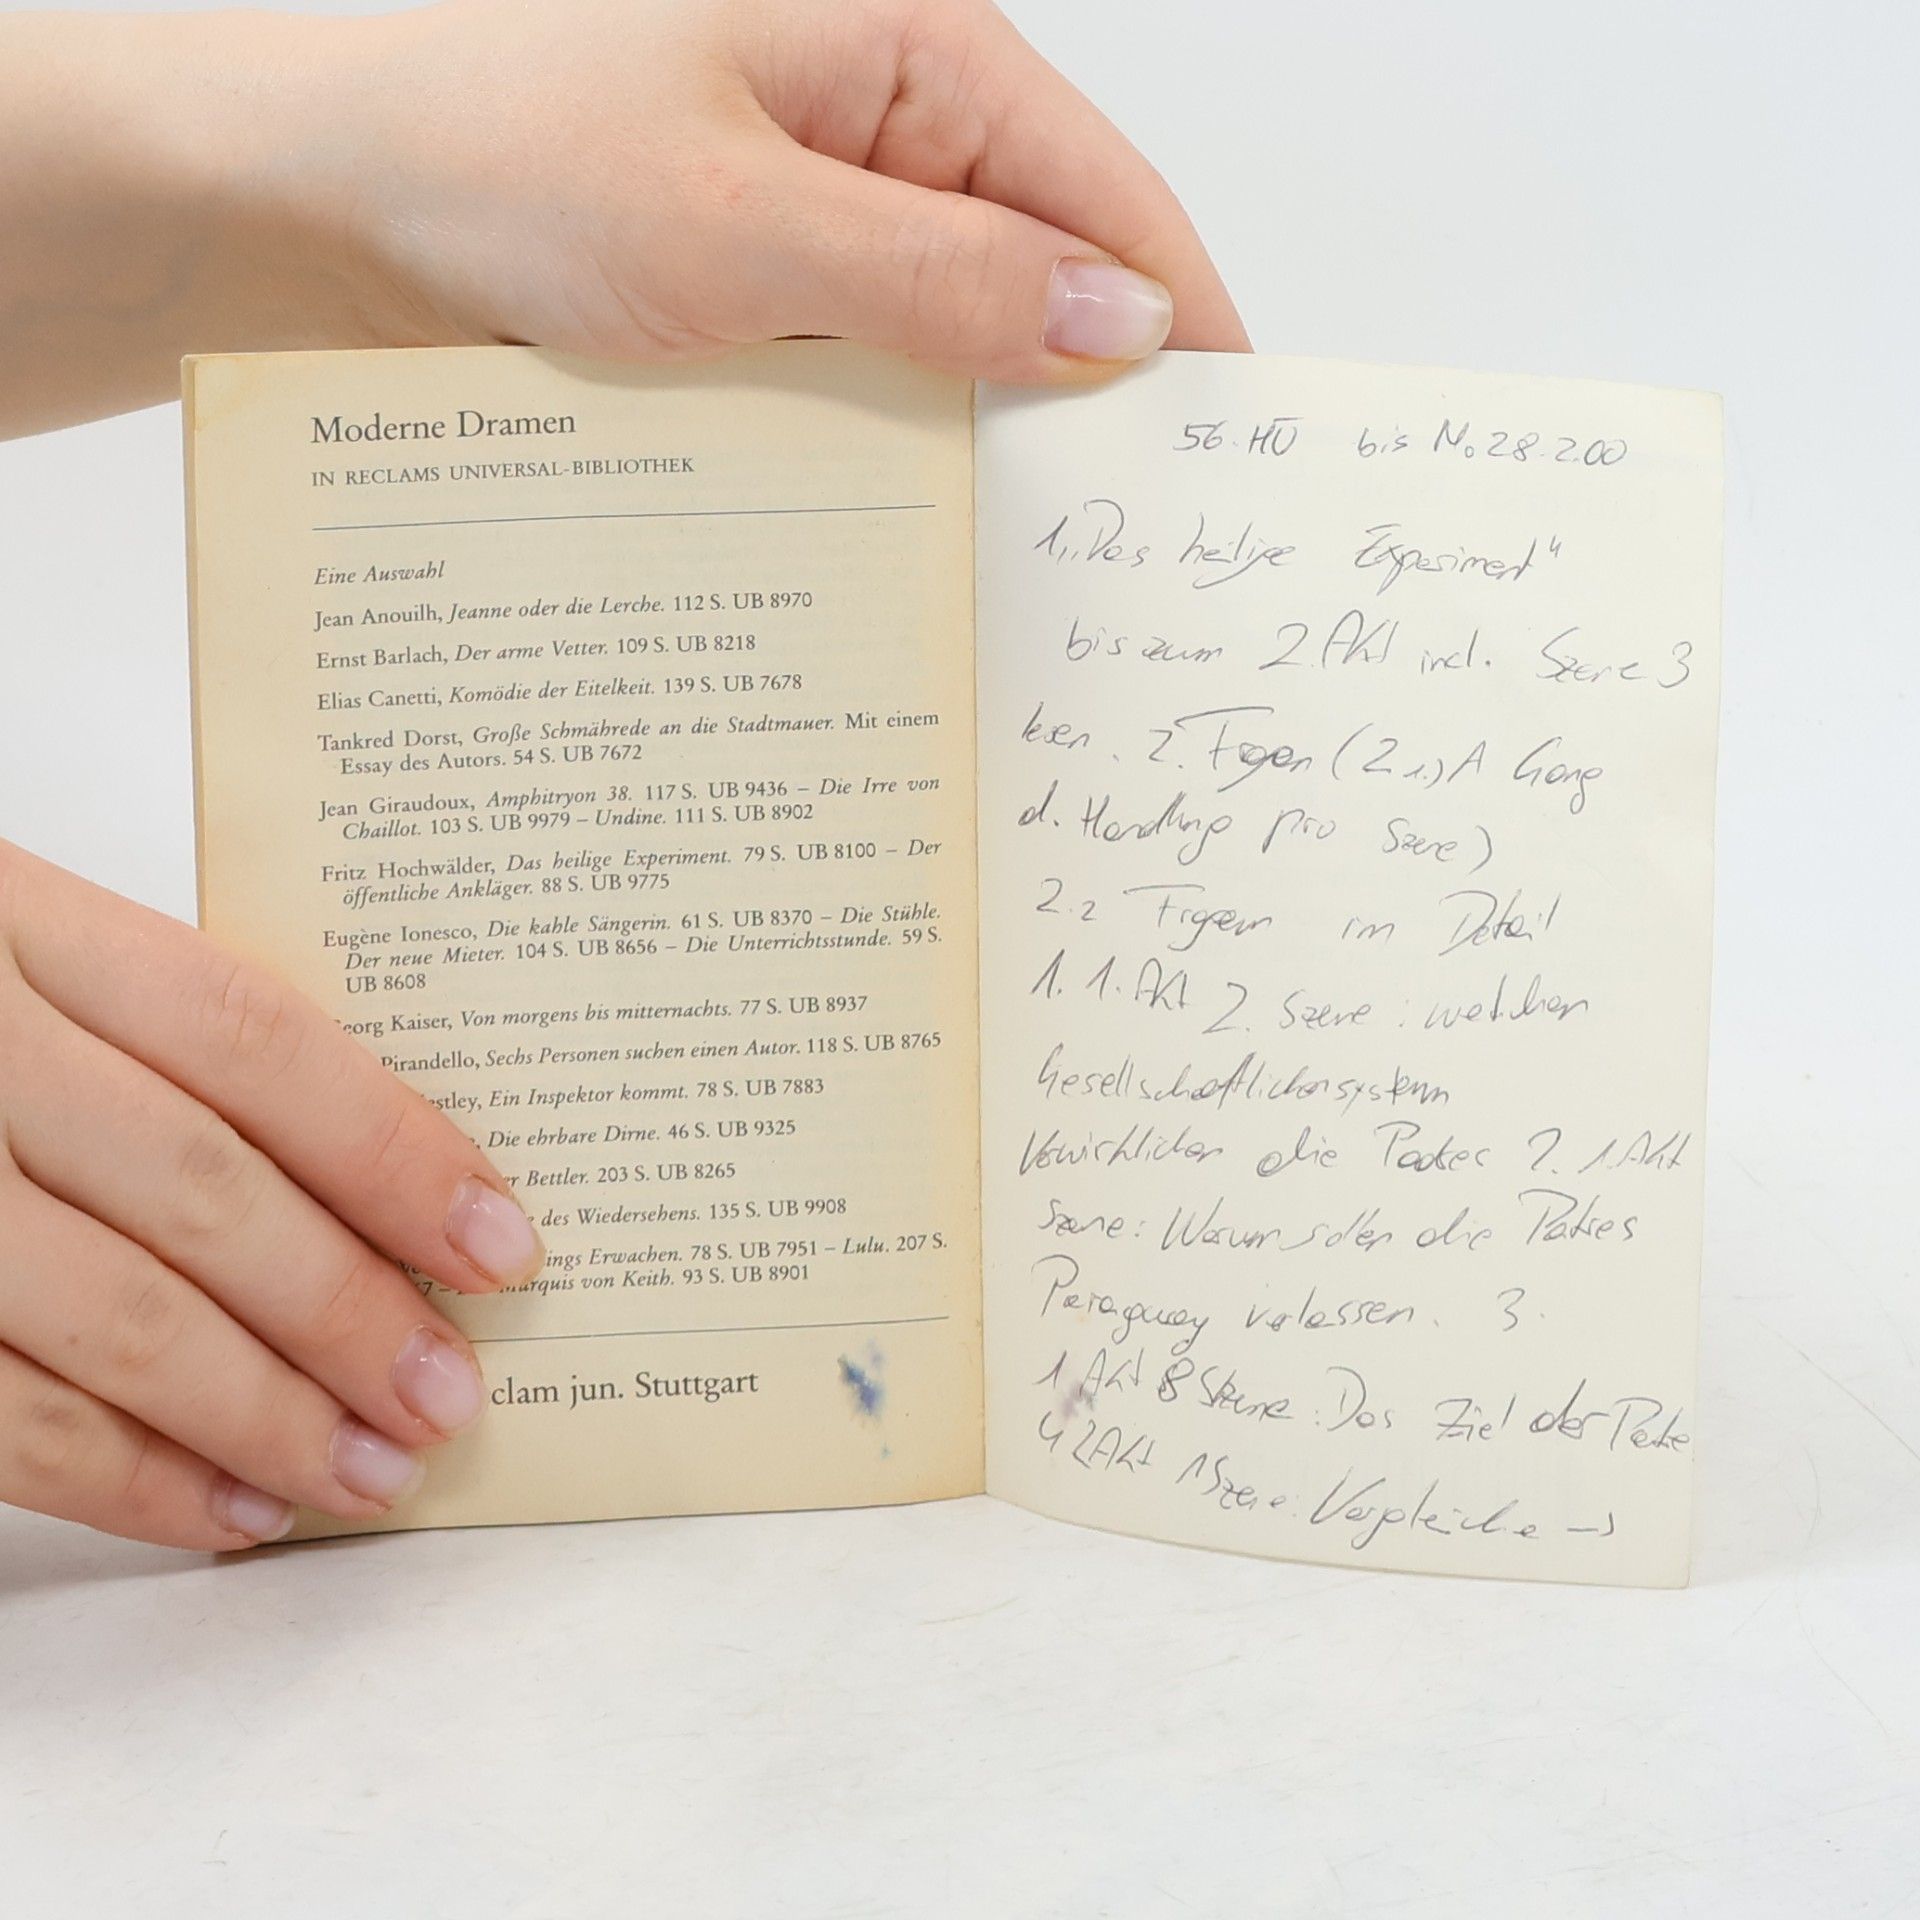 Moderne Dramen
IN RECLAMS UNIVERSAL-BIBLIOTHEK
Eine Auswahl
Jean Anouilh, Jeanne oder die Lerche. 112 S. UB 8970
Ernst Barlach, Der arme Vetter. 109 S. UB 8218
Elias Canetti, Komödie der Eitelkeit. 139 S. UB 7678
Tankred Dorst, Große Schmährede an die Stadtmauer. Mit einem
Essay des Autors. 54 S. UB 7672
Jean Giraudoux, Amphitryon 38. 117 S. UB 9436 – Die Irre von
Chaillot. 103 S. UB 9979 – Undine. 111 S. UB 8902
Fritz Hochwälder, Das heilige Experiment. 79 S. UB 8100 – Der
öffentliche Ankläger. 88 S. UB 9775
Eugène Ionesco, Die kahle Sängerin. 61 S. UB 8370 – Die Stühle.
Der neue Mieter. 104 S. UB 8656 – Die Unterrichtsstunde. 59 S.
UB 8608
eorg Kaiser, Von morgens bis mitternachts. 77 S. UB 8937
Pirandello, Sechs Personen suchen einen Autor. 118 S. UB 8765
estley, Ein Inspektor kommt. 78 S. UB 7883
, Die ehrbare Dirne. 46 S. UB 9325
r Bettler. 203 S. UB 8265
des Wiedersehens. 135 S. UB 9908
ings Erwachen. 78 S. UB 7951 – Lulu. 207 S.
7 – Marquis von Keith. 93 S. UB 8901
clam jun. Stuttgart
56. HÜ bis Mo 28.2.00
1. „Das heilige Experiment"
bis zum 2. Akt incl. Szene 3
lesen. 2. (2.1) A Gang
d. Handlung pro Szene)
2.2 im Detail
1. 1. Akt 2. Szene: welchen
Gesellschaftlichensystem
Verwirklichen die Patres 2. 1. Akt
Szene: Warum sollen die Patres
Paraguay verlassen. 3.
1 Akt 8 Szene: Das Ziel der Patre
4 2Akt 1Szene: Vergleiche →